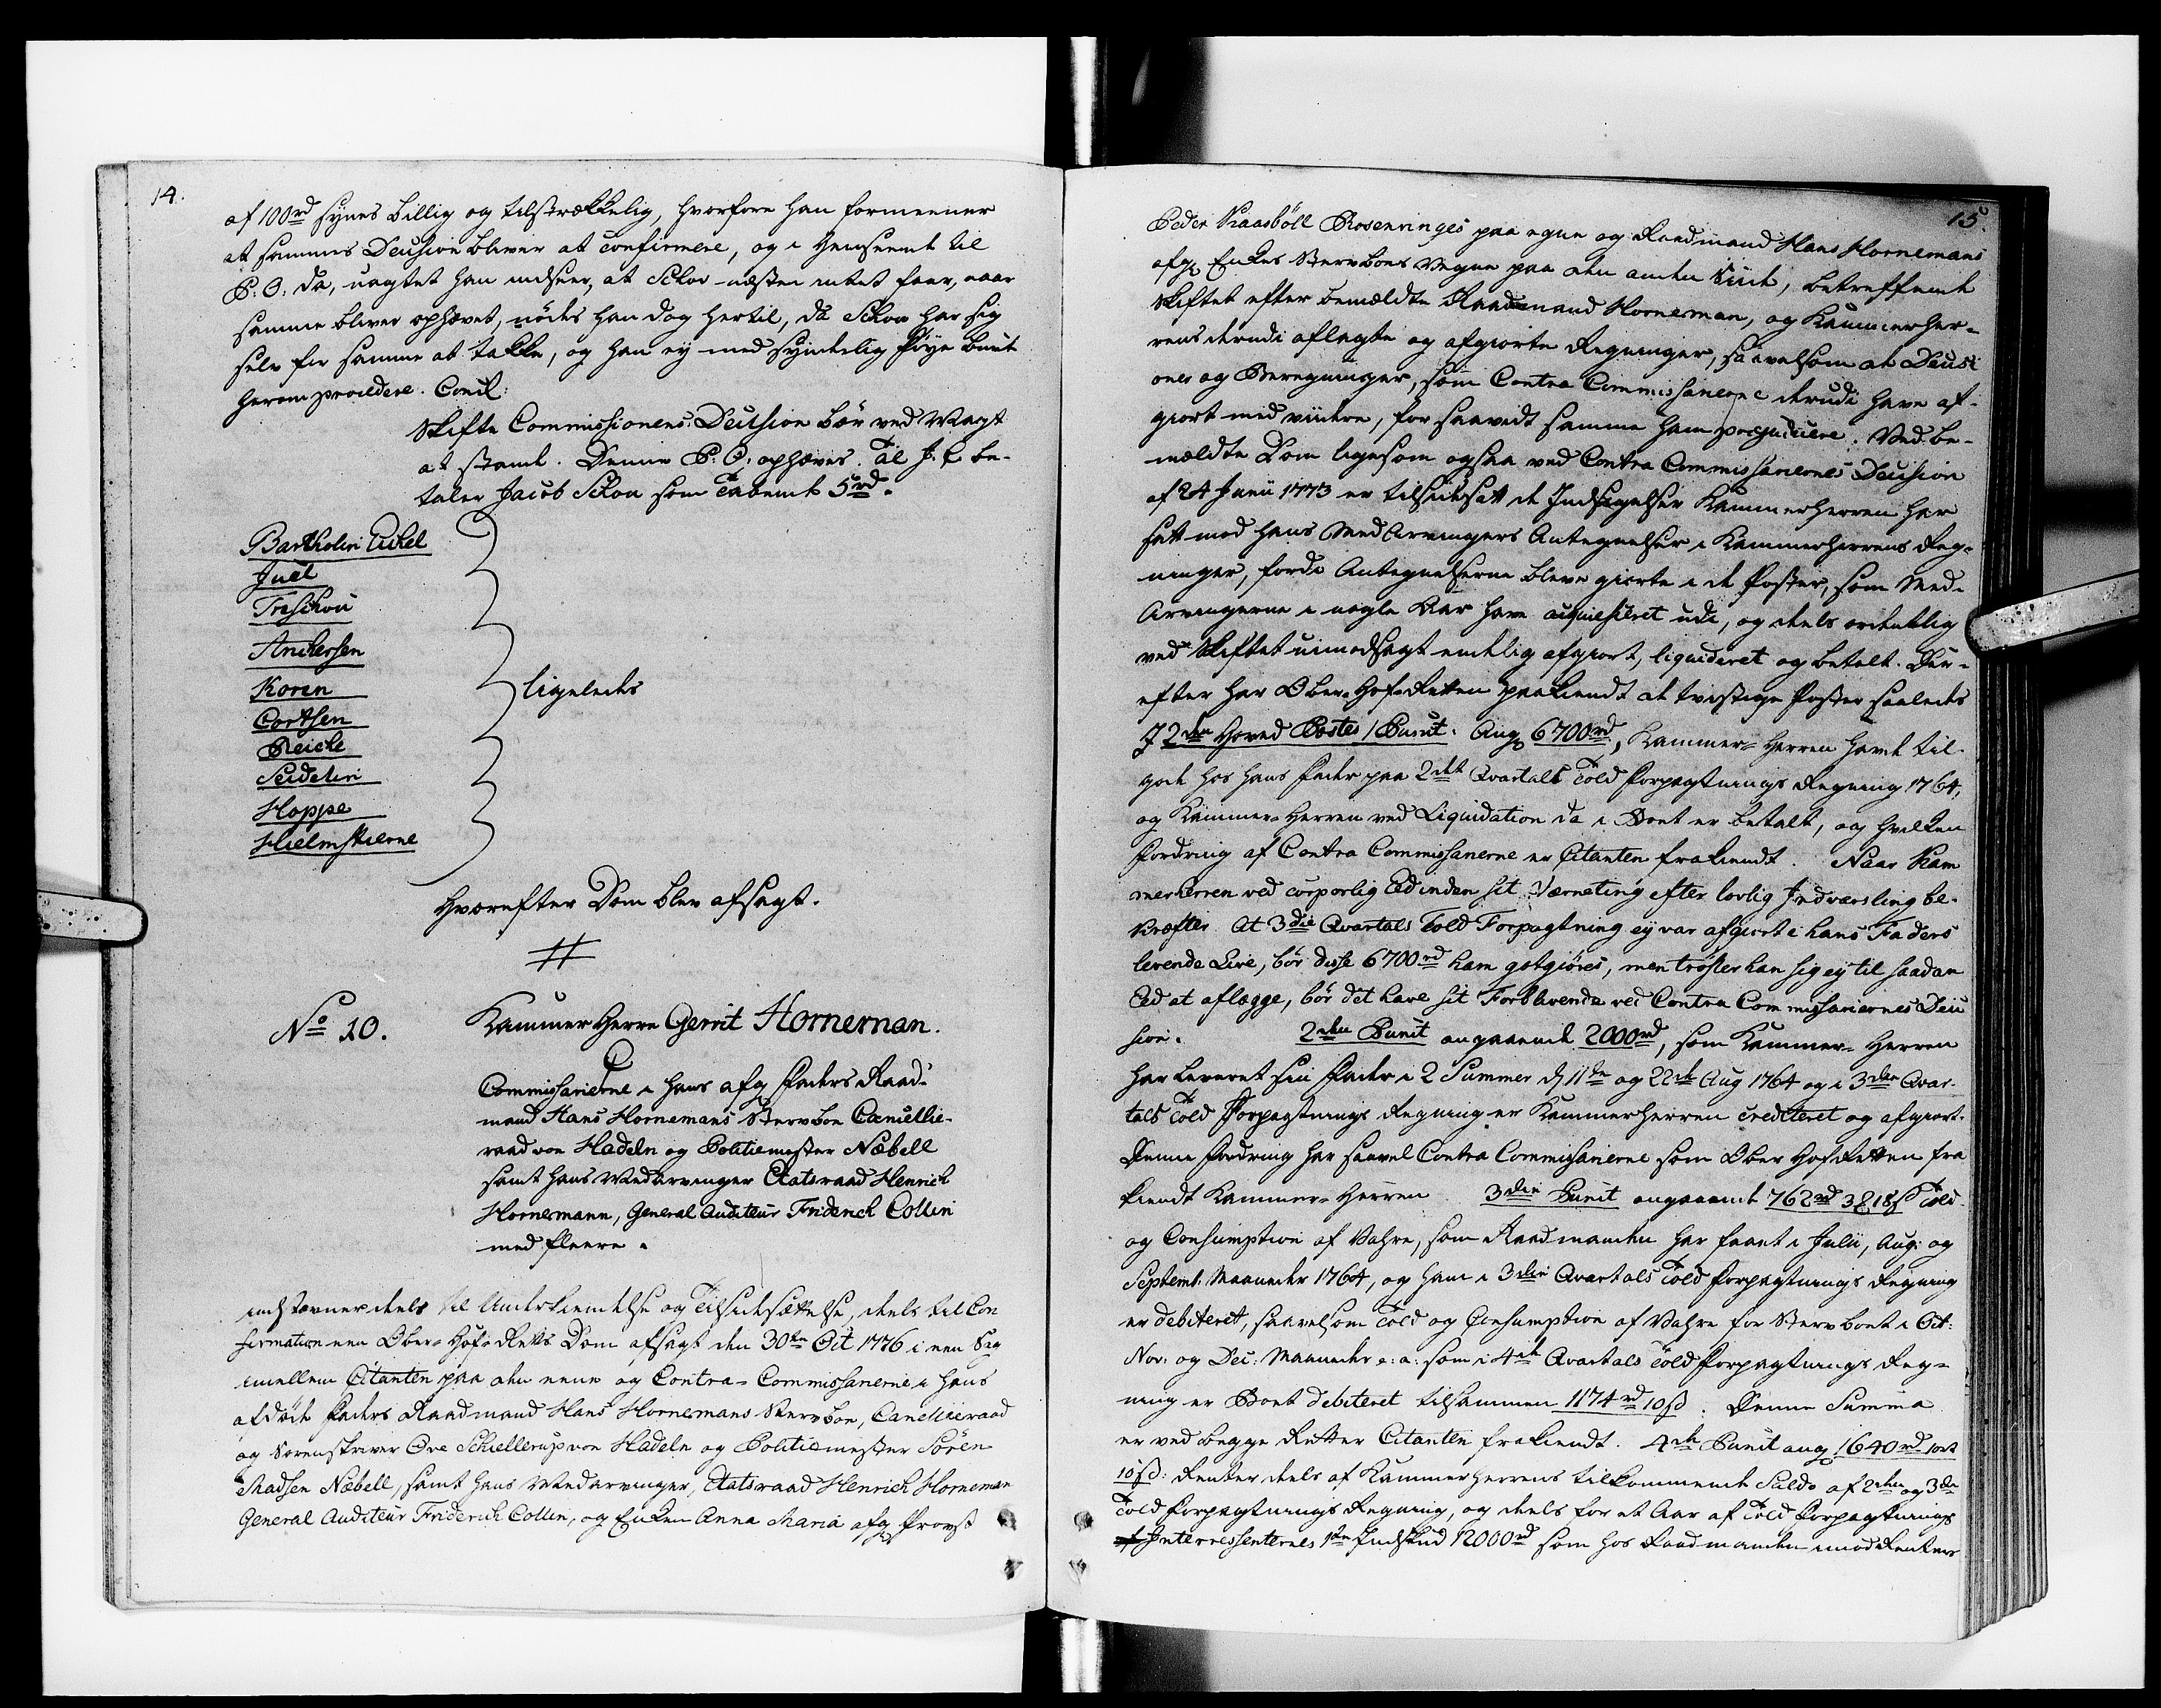 14.
af 100rd synes billig og tilstrækkelig, hvorfore han formeener
at sammes Decision bliver at confirmere, og i Henseende til
P: O: da, uagtet han indseer, at Schov næsten intet faar, naar
samme bliver ophævet, nødes han dog hertil, da Schou har sig
selv for samme at takke, og han ej med syndelig Føye burde
herom provedere. Concl:
Skifte Commissionens Decision bør ved Magt
at stande. Denne P: O: ophæves. Til J. C. be-
taler Jacob Schou som tabende 5rd.
Bartholin Eichel
Juel
Treschou
Andersen
Koren
Cortsen
Reiche
Seidelin
Hoppe
Hielmstierne
ligeledes
Hvorefter Dom blev afsagt.
No 10.
Kammer Herre Gerrit Horneman.
Commissarierne i hans afg Faders Raad-
mand Hans Hornemans Sterboe Cancellie-
raad von Hadeln og Politiemester Næbell
samt hans Medarvinger Etatsraad Henrich
Hornemann, General Auditeur Friderich Collin
med fleere.
indstævner deels til Underkiendelse og Tilsidesættelse, deels til Con
firmation een Ober-Hof-Retts Dom afsagt den 30te Oct 1776 i een Sag
imellem Citanten paa den eene og Contra-Commissarierne i hans
afdøde Faders Raadmand Hans Hornemans Stervboe, Cancellieraad
og Sorenskriver Ove Schiellerup von Hadeln og Politiemester Søren
Madsen Næbell, samt hans Medarvinger, Etatsraad Henrich Horneman
General Auditeur Friderich Collin, og Enken Anna Maria afg Provst
15.
Peder Kraasböll Rosenvinges paa egne og Raadmand Hans Hornemans
afg Enkes Stervboes Vegne paa den anden Side, betreffende
Skiftet efter bemældte Raadmand Horneman, og Kammerher-
rens derudi aflagte og afgiorte Regninger, saavelsom at Decisi
oner og Beregninger, som Contra Commissarierne derudi have af-
giort med viidere, for saavidt samme ham præjudicere. Ved be-
mældte Dom ligesom ogsaa ved Contra Commissariernes Decision
af 24 Junii 1773 er tilsidesatt de Indsigelser Kammerherren har
satt mod hans Med Arvingers Antegnelser i Kammerherrens Reg-
ninger, fordi Antegnelserne bleve giorte i de Poster, som Med-
Arvingerne i nogle Aar have acquiesceret udi, og deels ordentlig
ved Skiftet uimodsagt endelig afgiort, liqvideret og betalt. Der-
efter har Ober-Hof-Retten paakiendt de tvistige Poster saaledes
I 2den Hoved Postes 1 Punct. Ang 6700rd, Kammer-Herren havde til-
gode hos hans Fader paa 2det Qvartals Told Forpagtnings Regning 1764,
og Kammer-Herren ved Liquidation da i Boet er betalt, og hvilken
Fordring af Contra Commissarierne er Citanten frakiendt. Naar Kam
merherren ved corporlig Eed inden sit Værneting efter lovlig Indvarsling be-
kræfter. At 3die Qvartals Told Forpagtning ey var afgiort i hans Faders
levende Live, bør disse 6700rd ham gotgiøres, men trøster han sig ey til saadan
Eed at aflægge, bør det have sit Forblivende ved Contra Commissariernes Deci
sion. 2den Punct angaaende 2000rd, som Kammer-Herren
har leveret sin Fader i 2 Summer d 11te og 22de Aug 1764 og i 3die Qvar-
tals Told Forpagtnings Regning er Kammerherren crediteret og afgiort.
Denne Fordring har saavel Contra Commissarierne som Ober Hof Retten fra
kiendt Kammer-Herren 3die Punct angaaende 762rd 3 18ß Told
og Consumption af Vahre, som Raadmanden har faaet i Julii, Aug: og
Septemb: Maaneder 1764, og ham i 3die Qvartals Told Forpagtnings Regning
er debiteret, saavelsom Told og Consumption af Vahre for Stervboet i Oct:
Nov: og Dec: Maaneder e: a: som i 4de Qvartals Told Forpagtnings Reg-
ning er Boet debiteret tilsammen 1174rd 10ß. Denne Summa
er ved begge Retter Citanten frakiendt. 4de Punct ang 1640rd 1ort
10ß: Renter deels af Kammerherrens tilkommende Saldo af 2den og 3die
Told Forpagtnings Regning, og deels for et Aar af Told Forpagtnings
Interessenternes 1te Indskud 12000rd som hos Raadmanden imod Renters